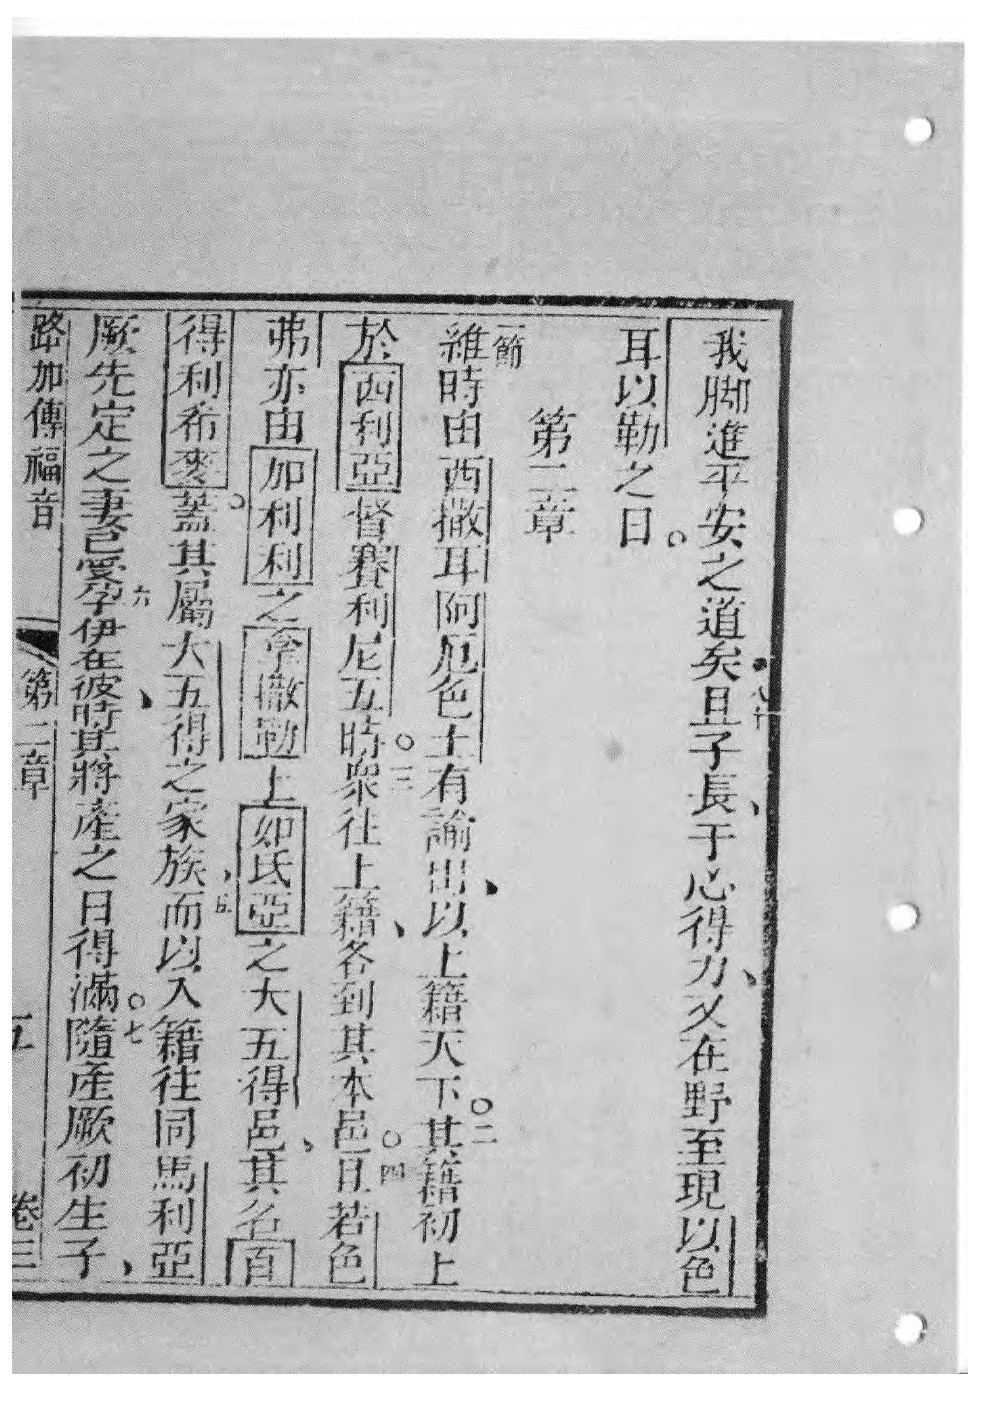 我脚進平安之道矣且子長于心得力又在野至現以色
八十
耳以勒之日
第二章
一節
維時由西撒耳阿厄色土有諭出以上籍天下其籍初上
二
於西利亞督賽利尼五時衆往上籍各到其本邑且若色
三
四
弗亦由加利利之拿撒勒上如氐亞之大五得邑其名百
得利希麥蓋其屬大五得之家族而以入籍往同馬利亞
五
厥先定之妻已受孕伊在彼時其將產之日得滿隨產厥初生子
六
七
路加傳福音 第二章 五 卷三